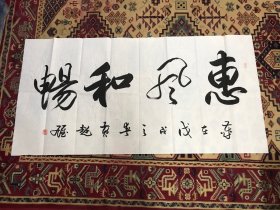 惠风和畅
岁在戊戌之春月赵